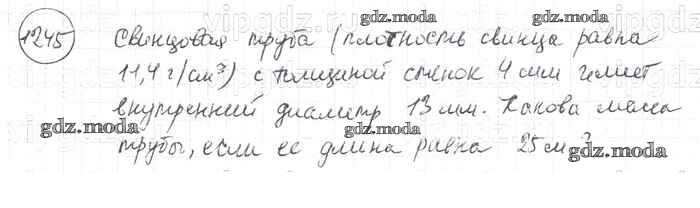 gdz.moda
1245 Свинцовая труба (плотность свинца равна
gdz.moda
11,4 г/см³) с толщиной стенок 4 мм имеет
внутренний диаметр 13 мм. Какова масса
gdz.moda gdz.moda
трубы, если ее длина равна 25 м?
gdz.moda